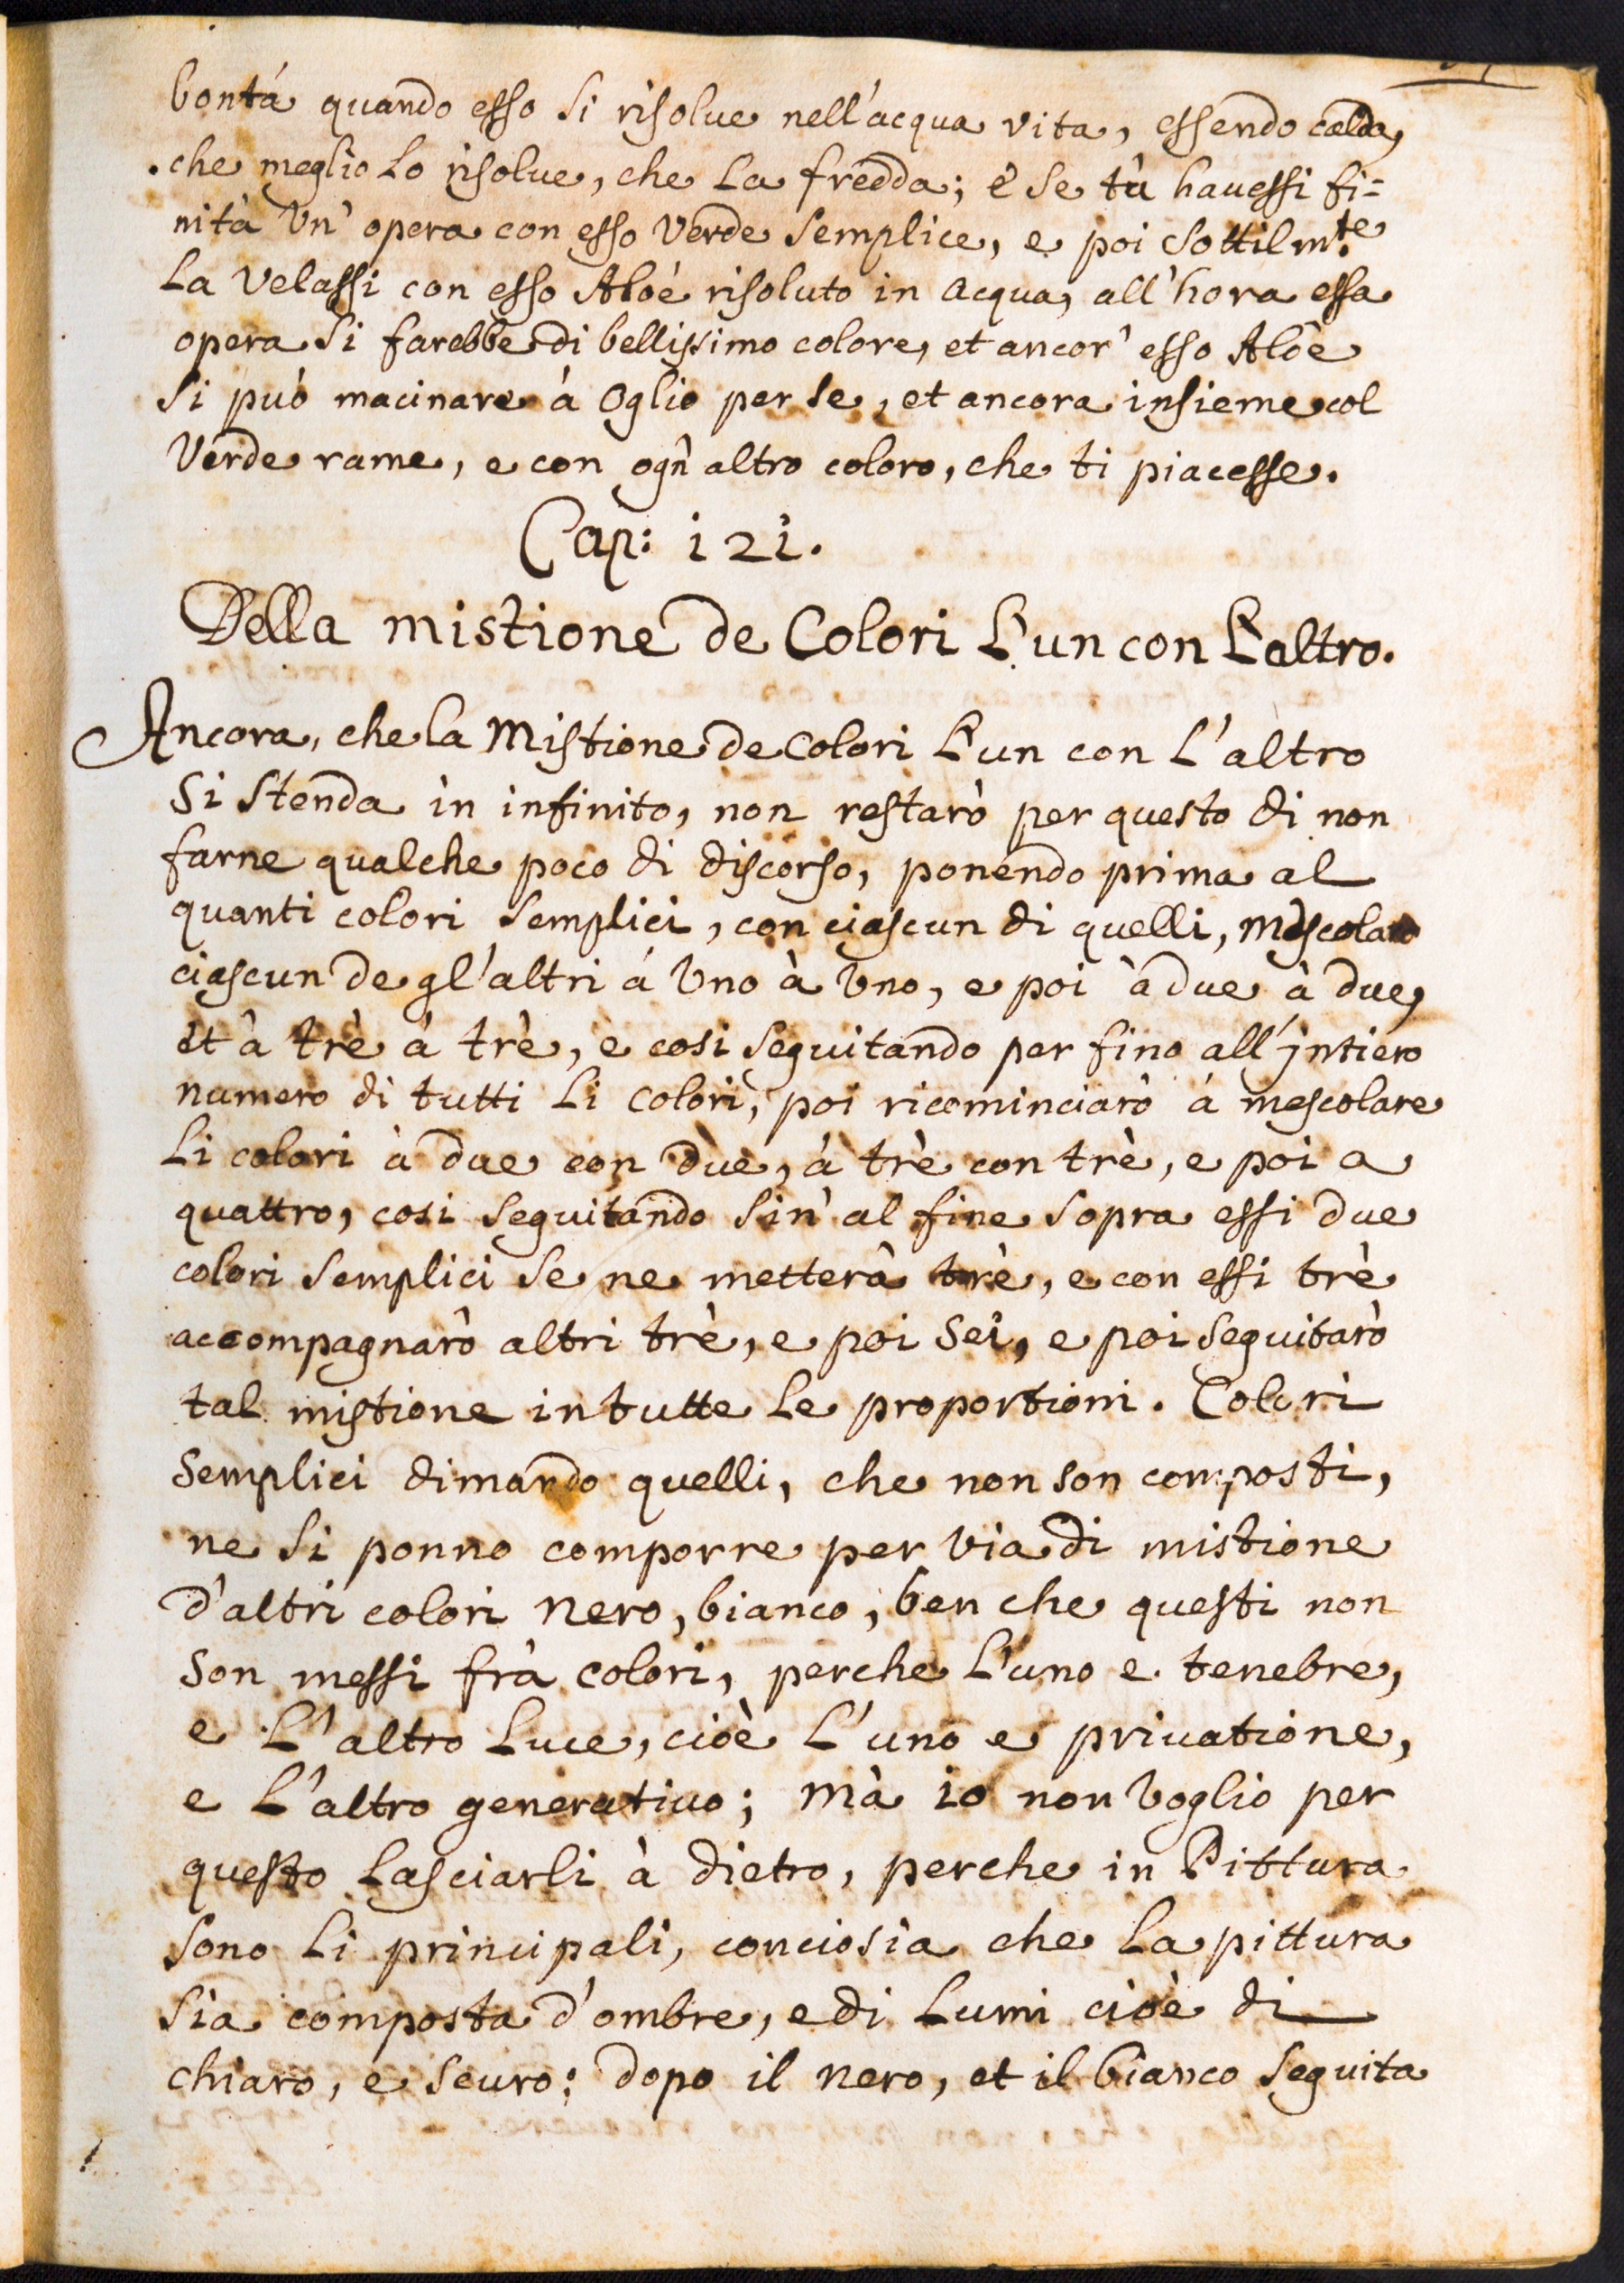 bontá quando esso si risolue nell'acqua vita, essendo calda,
che meglio lo risolue, che la fredda; è se tù hauessi fi=
nità un' opera con esso Verde semplice, e poi sottilm.te
la velassi con esso Aloè risoluto in acqua, all'hora essa
opera si farebbe di bellissimo colore, et ancor' esso Aloè
si può macinare à oglio per se, et ancora insieme col
Verde rame, e con ogn'altro coloro, che ti piacesse.
Cap: 121.
Della mistione de Colori L'un con L'altro.
Ancora, che la Mistione de colori L'un con L'altro
si stenda in infinito, non restarò per questo di non
farne qualche poco di discorso, ponendo prima al
quanti colori semplici, con ciascun di quelli, mescolato
ciascun de gl'altri á uno à uno, e poi à due à due,
et à trè á trè, e cosi seguitando per fino all'jntiero
numero di tutti li colori, poi ricominciarò á mescolare
li colori à due con due, á trè con trè, e poi a
quattro, cosi seguitando sin' al fine sopra essi due
colori semplici se ne metterà trè, e con essi trè
accompagnarò altri trè, e poi sei, e poi seguitarò
tal mistione in tutte le proportioni. Colori
semplici dimando quelli, che non son composti,
ne si ponno comporre per via di mistione
d'altri colori nero, bianco, ben che questi non
son messi frà colori, perche L'uno e tenebre,
e L'altro luce, cioè L'uno e priuatione,
e L'altro generatiuo; mà io non voglio per
questo lasciarli à dietro, perche in Pittura
sono li principali, conciosia che la pittura
sia composta d'ombre, e di lumi cioè di
chiaro, e scuro; dopo il nero, et il bianco seguita